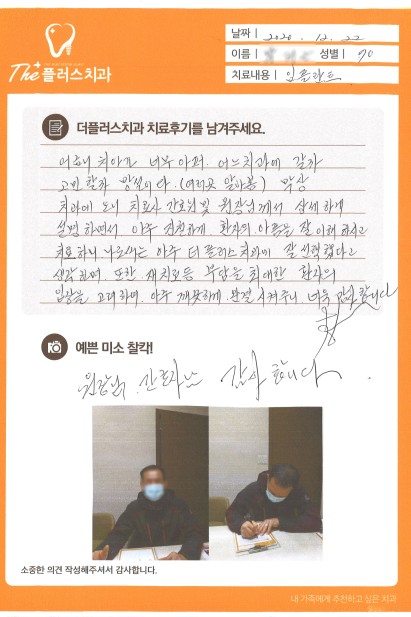 The+플러스치과
날짜 2020. 12. 22
이름 성별 70
치료내용 임플란트
더플러스치과 치료후기를 남겨주세요.
치아가 너무 아퍼. 어느 치과에 갈까
고민 망설이다. (여러곳 알아봄) 막상
치과에 오니 간호님 및 원장님께서 상세하게
설명하면서 아주 친절하게 환자의 아픔을 잘 이해 하시고
치료하니 나로서는 아주 더 플러스치과에 잘 선택했다고
생각하며, 또한 부담을 최대한 환자의
입장을 고려하여, 아주 깨끗하게 완결 시켜주니 너무 감사합니다
예쁜 미소 찰칵!
원장님, 간호사님 감사합니다.
소중한 의견 작성해주셔서 감사합니다.
내 가족에게 추천하고 싶은 치과